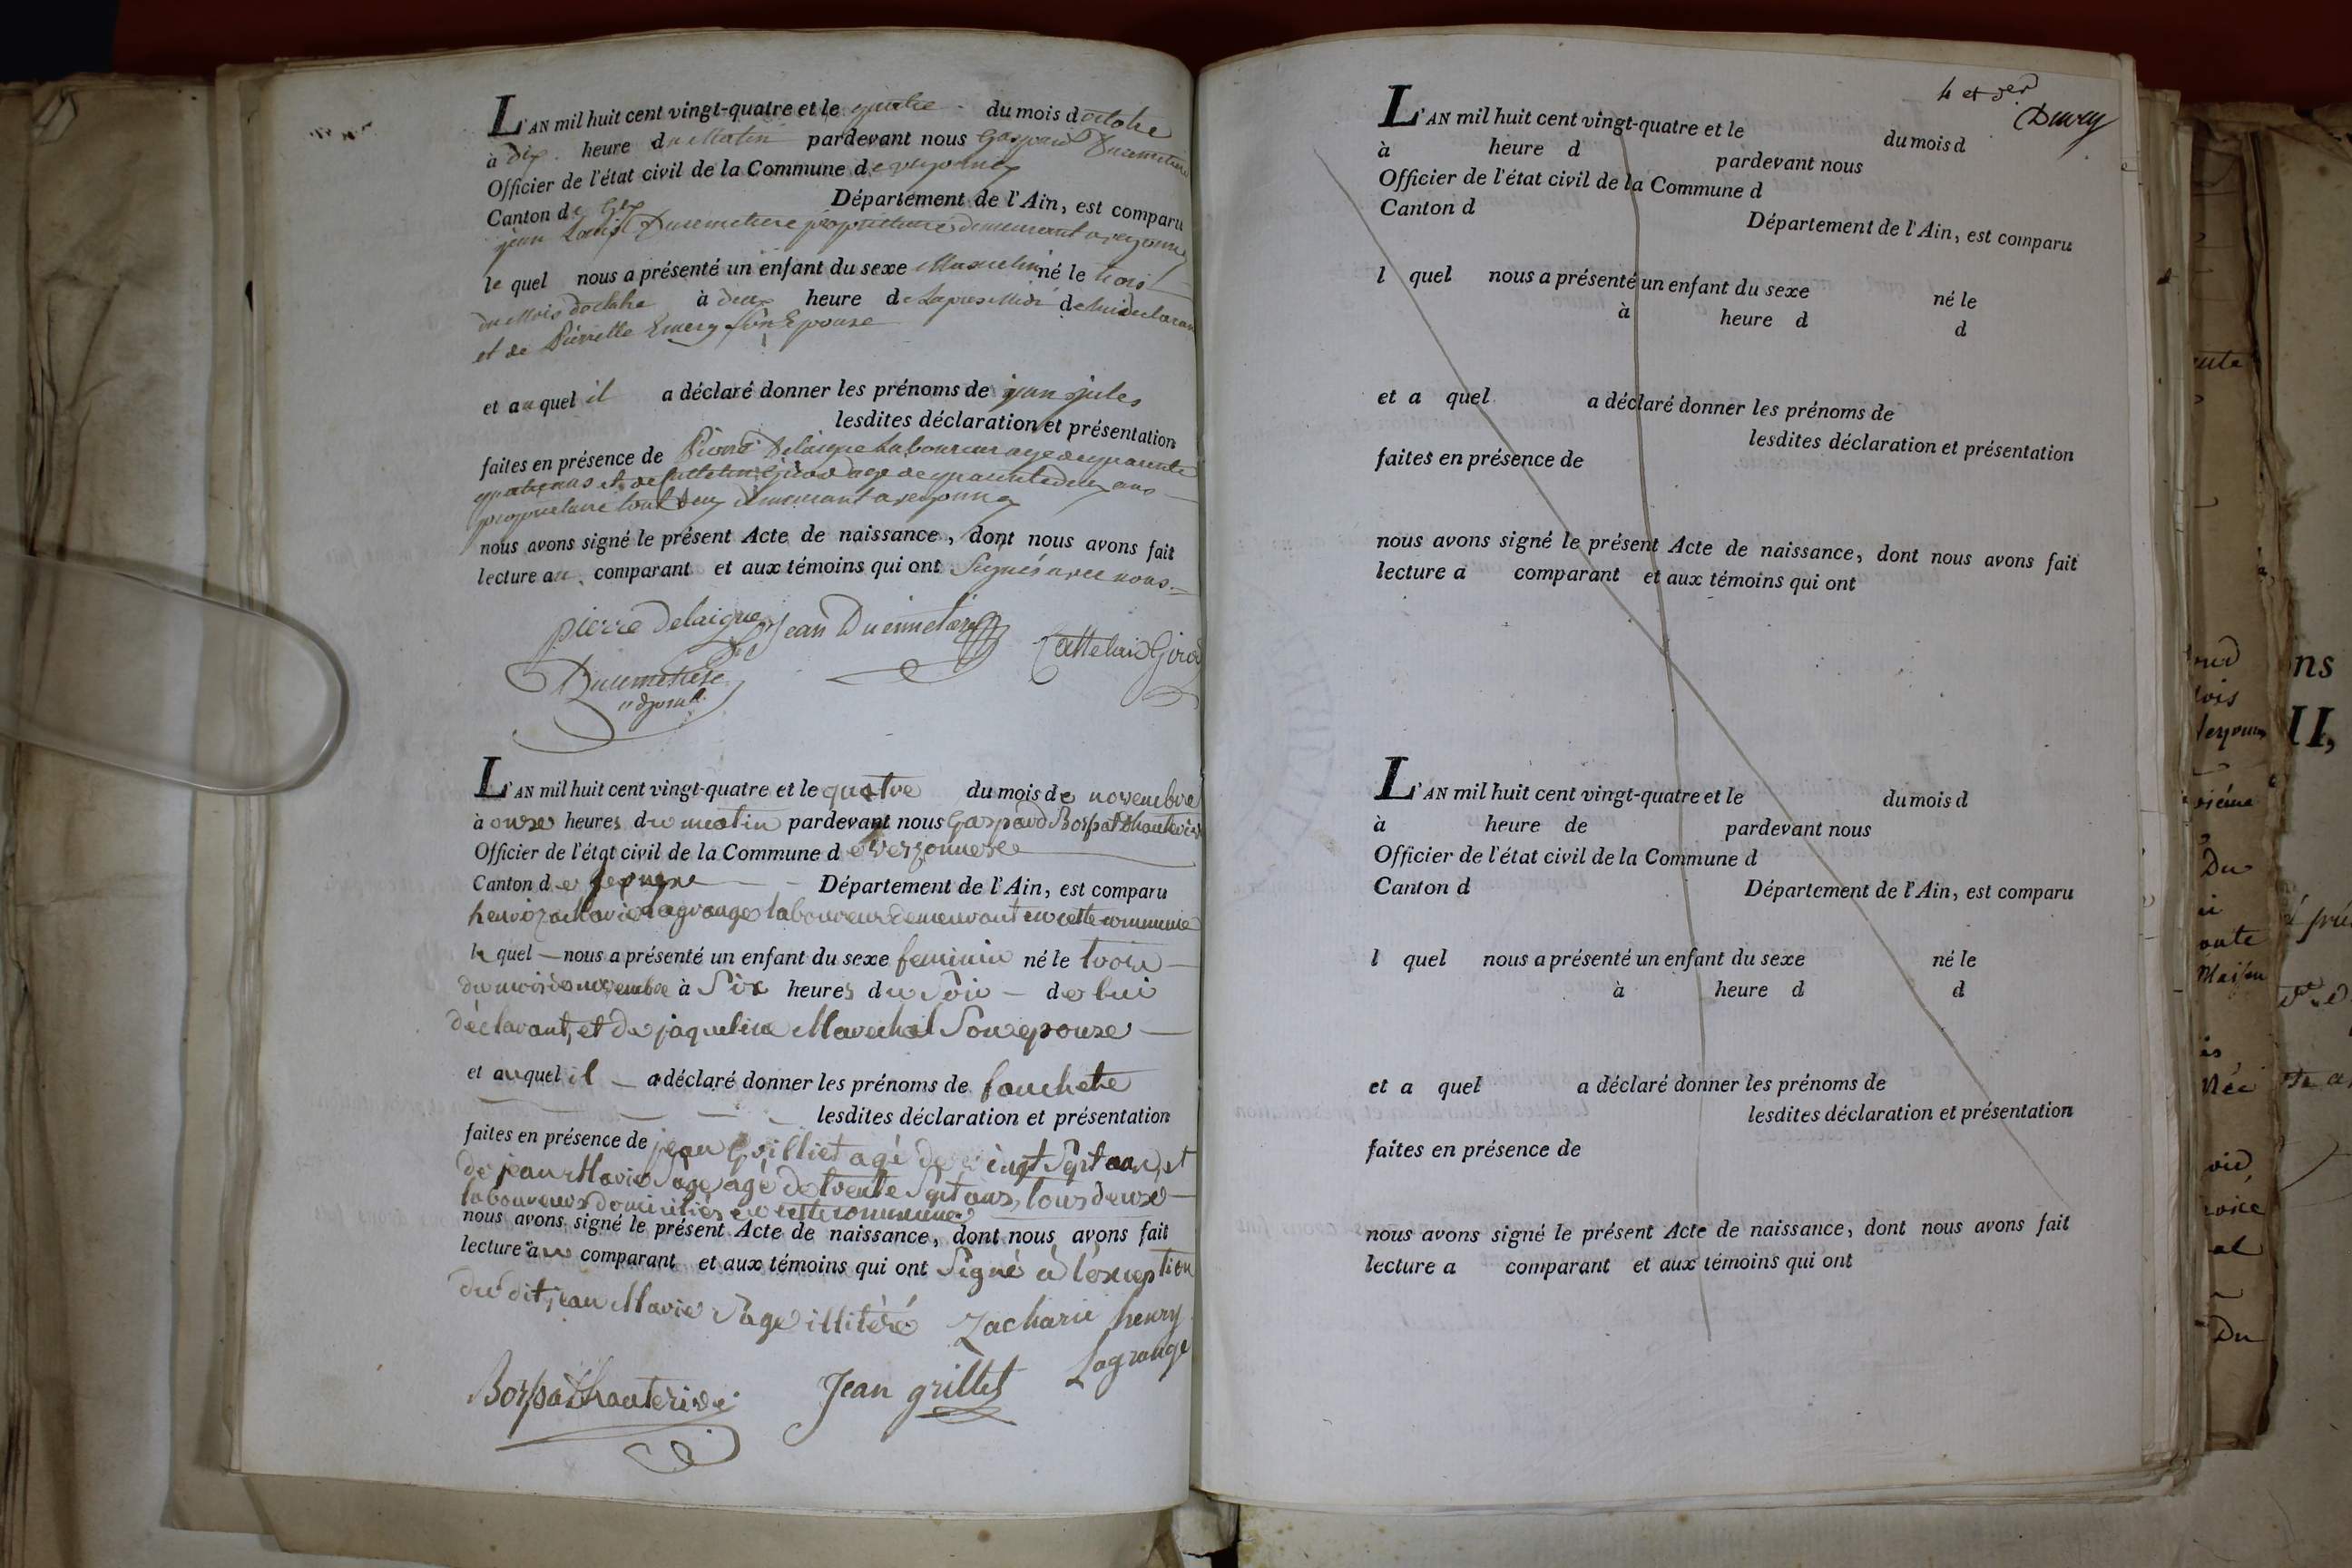 L'AN mil huit cent vingt-quatre et le quatre du mois doctobre
à dix heure du Matin pardevant nous Gaspard Ducimetiere
Officier de l'état civil de la Commune de
Canton de Gex Département de l'Ain, est comparu
jean Louis Ducimetiere propriettaire demeurant a
le quel nous a présenté un enfant du sexe Masculin né le trois
du Mois doctobre à deux heure de Lapres Midi de lui declarant
et de Pierrette Emery son Epouse
et au quel il a déclaré donner les prénoms de jean jules
lesdites déclaration et présentation
faites en présence de Pierre Delaigue Laboureur age de quarente
quatre ans et de Cattelin Girod age de quarente deux ans
propriettaire tout deux demeurant a
nous avons signé le présent Acte de naissance, dont nous avons fait
lecture au comparant et aux témoins qui ont Signés avec nous
pierre Delaigue Jean Ducimetiere Cattelin Girod
Ducimetiere
adjoint
L'AN mil huit cent vingt-quatre et le quatre du mois de novembre
à onze heures du matin pardevant nous Gaspard Borssat d'hauterive
Officier de l'état civil de la Commune de versonnexe
Canton de Département de l'Ain, est comparu
henri zacharie Lagrange laboureur demeurant en cette commune
le quel nous a présenté un enfant du sexe feminin né le trois
du mois de novembre à Six heures du Soir de lui
déclarant, et de jaqueline Marechal Son epouse
et au quel il a déclaré donner les prénoms de fanchette
lesdites déclaration et présentation
faites en présence de jean Grilliet agé de vingt Sept ans, et
de jean Marie Sage agé de trente Sept ans, tous deux
laboureurs domiciliés en cette commune
nous avons signé le présent Acte de naissance, dont nous avons fait
lecture au comparant et aux témoins qui ont Signé à l'exception
du dit jean Marie Sage illitéré Zacharie henry
Lagrange
Borssat d'hauterive Jean grillet
4 et der
L'AN mil huit cent vingt-quatre et le du mois d
à heure d pardevant nous
Officier de l'état civil de la Commune d
Canton d Département de l'Ain, est comparu
l quel nous a présenté un enfant du sexe né le
à heure d d
et a quel a déclaré donner les prénoms de
lesdites déclaration et présentation
faites en présence de
nous avons signé le présent Acte de naissance, dont nous avons fait
lecture a comparant et aux témoins qui ont
L'AN mil huit cent vingt-quatre et le du mois d
à heure de pardevant nous
Officier de l'état civil de la Commune d
Canton d Département de l'Ain, est comparu
l quel nous a présenté un enfant du sexe né le
à heure d d
et a quel a déclaré donner les prénoms de
lesdites déclaration et présentation
faites en présence de
nous avons signé le présent Acte de naissance, dont nous avons fait
lecture a comparant et aux témoins qui ont